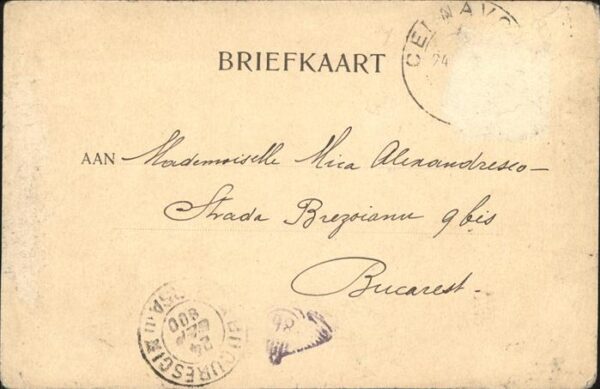 BRIEFKAART
CERNAVO
24
AAN Mademoiselle Mica Alexandresco-
Strada Brezoianu 9 bis
Bucarest-
BUCURESCI
24 SEP
900